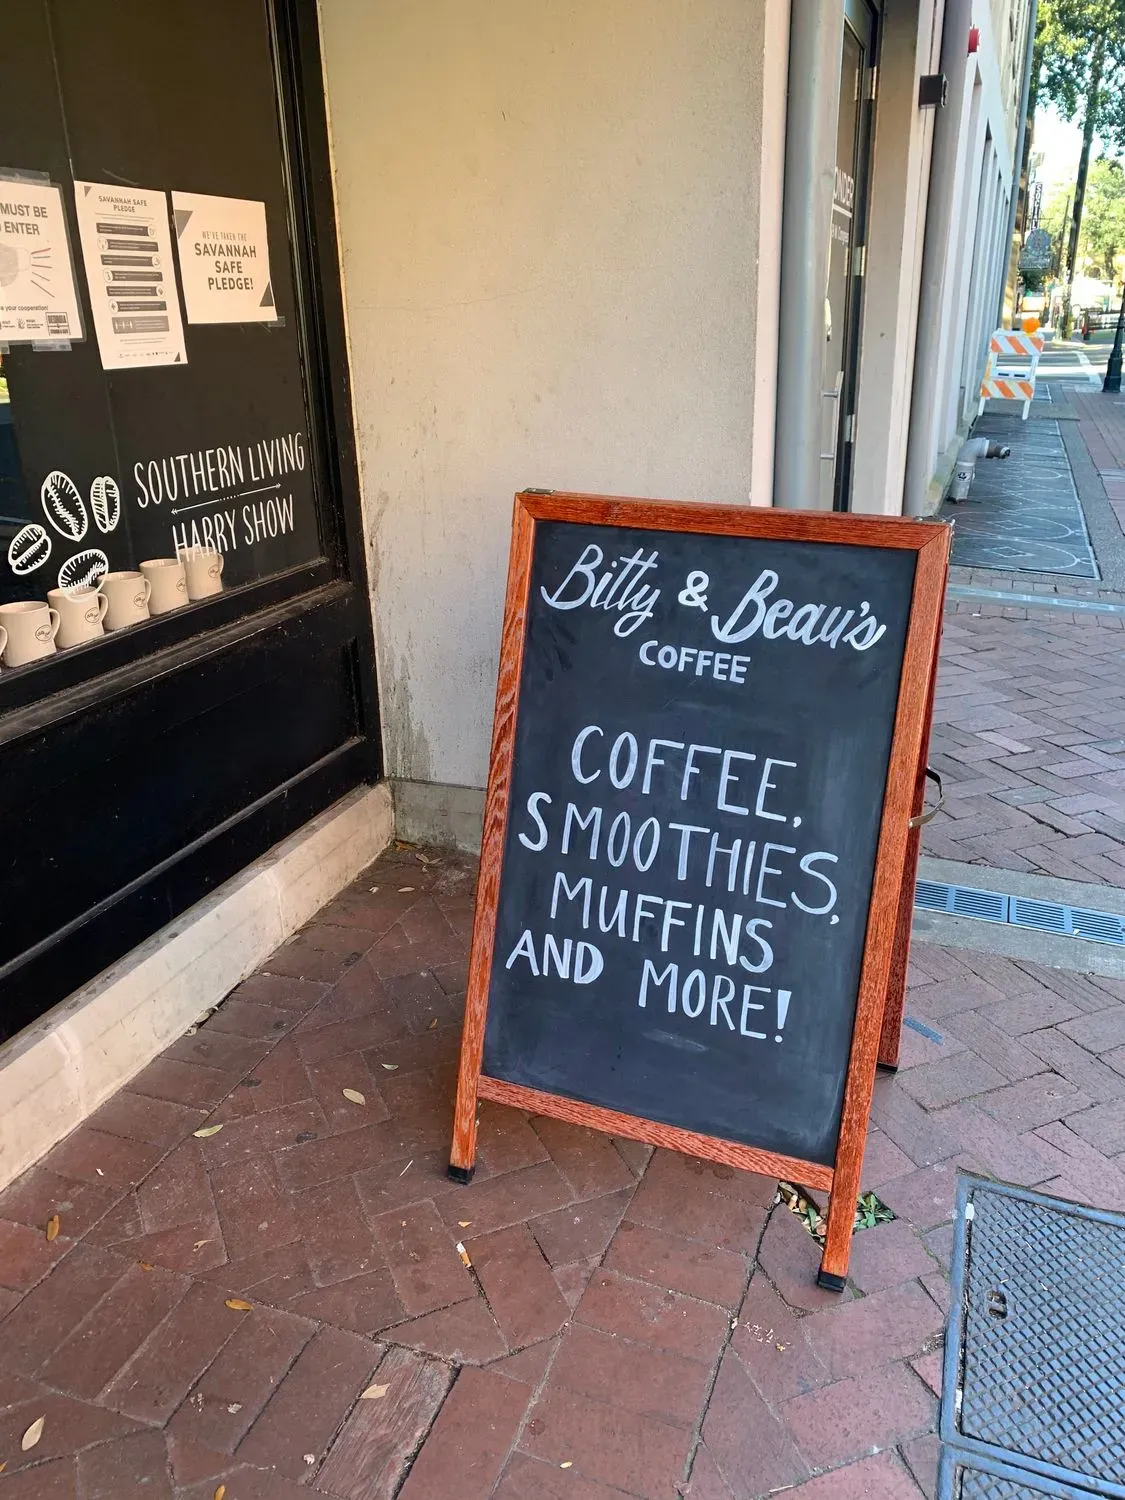 MUST BE
ENTER
your cooperation!
SAVANNAH SAFE
PLEDGE
WE'VE TAKEN THE
SAVANNAH
SAFE
PLEDGE!
SOUTHERN LIVING
HARRY SHOW
Bitty & Beau's
COFFEE
COFFEE,
SMOOTHIES,
MUFFINS
AND MORE!